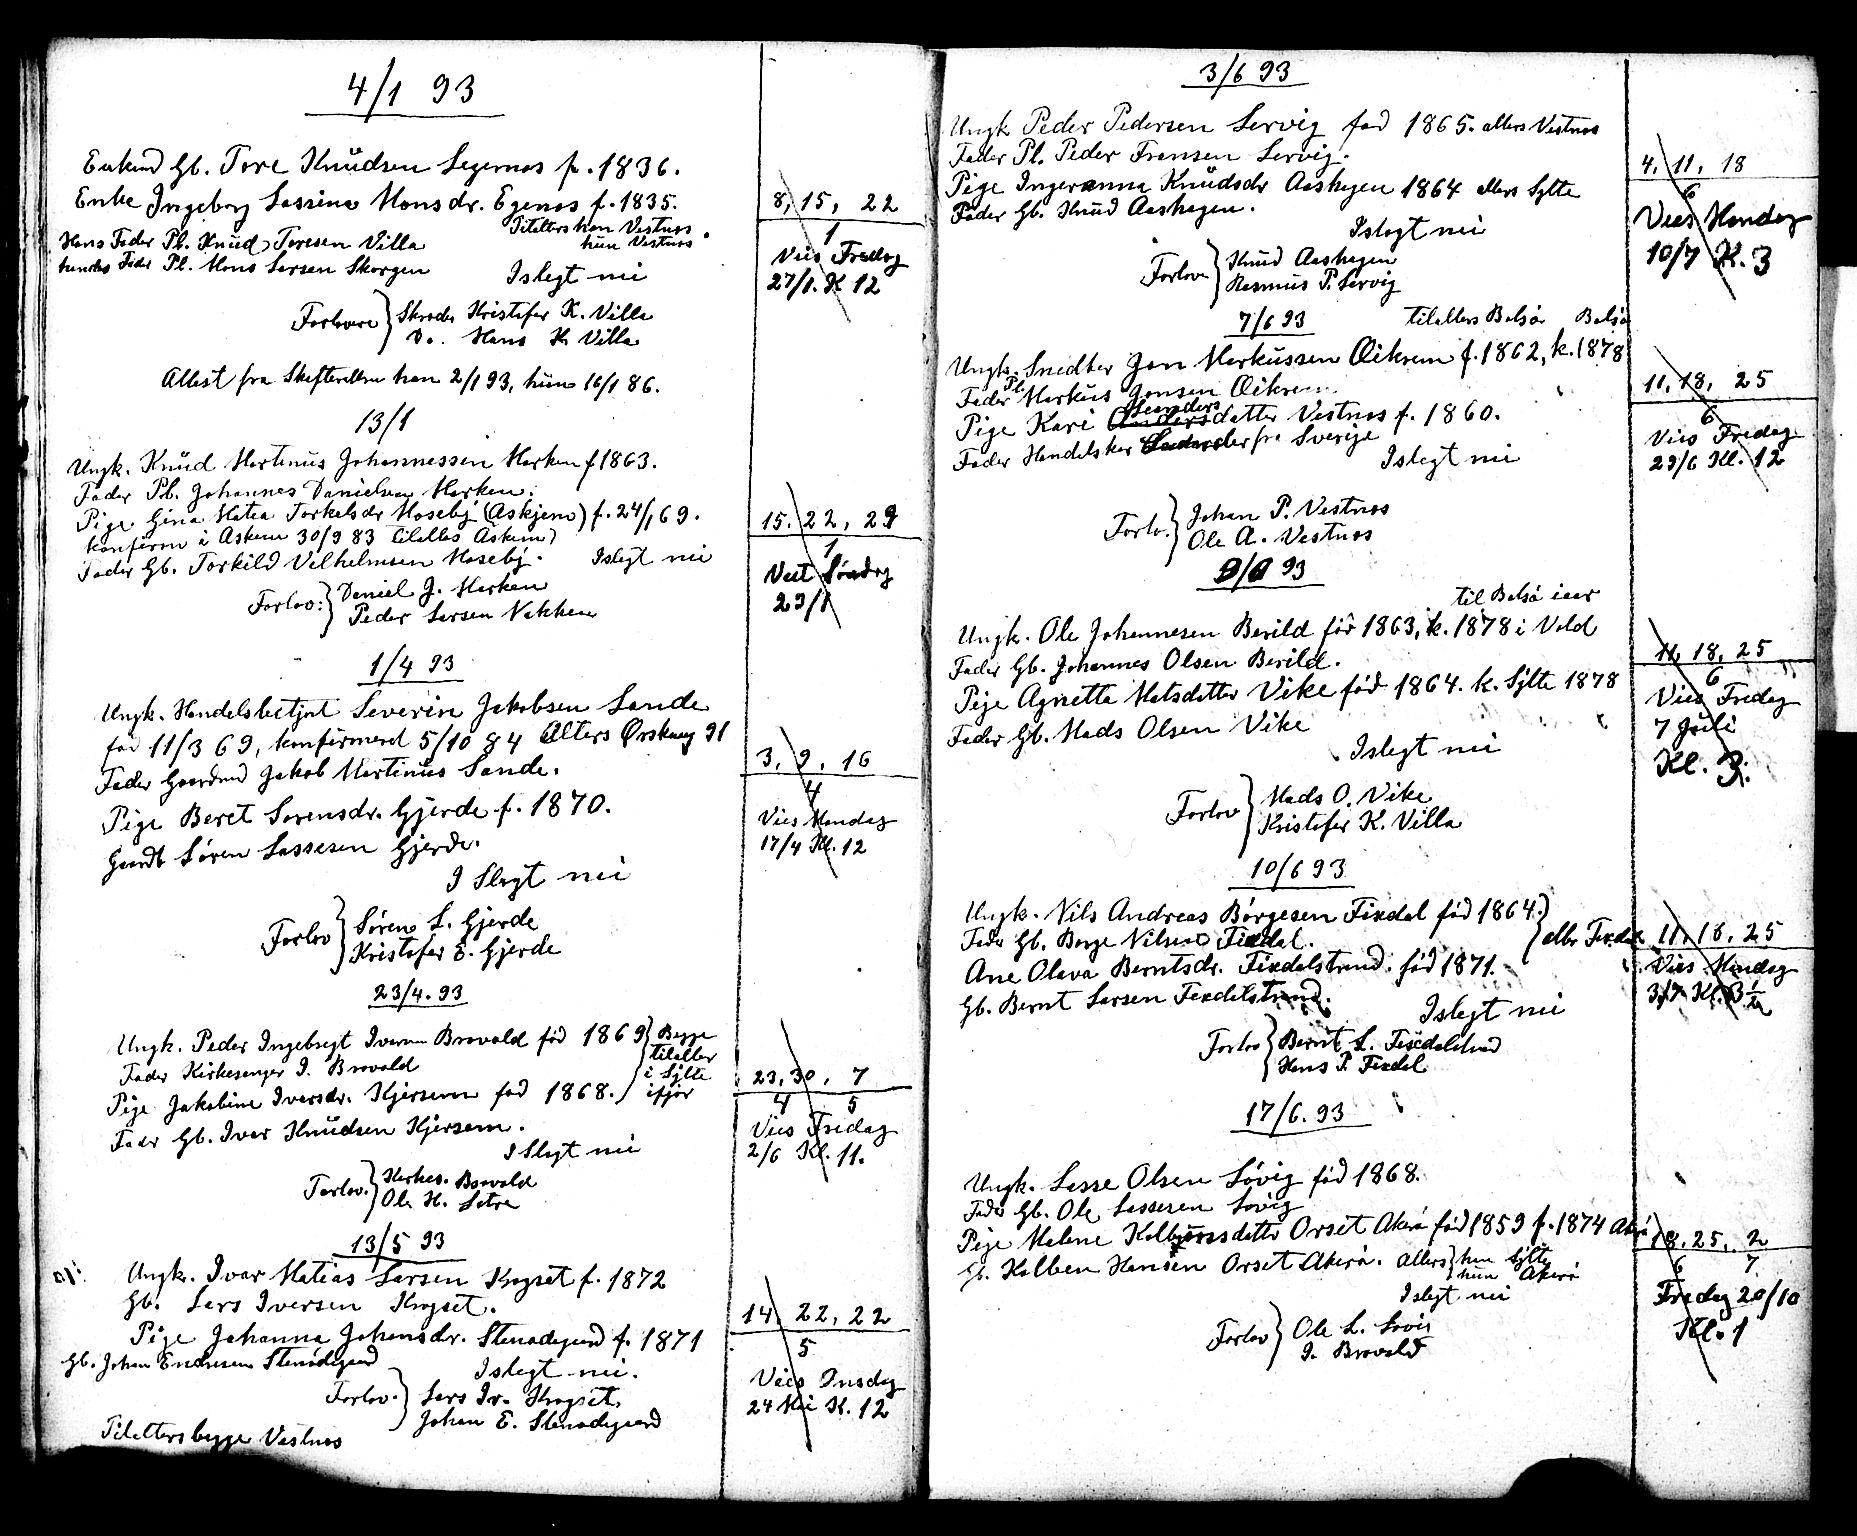 4/1 93
Enkem Gb. Tore Knudsen Legernes f. 1836.
Enke Ingeborg Lassine Monsdr. Egenes f. 1835.
Tilalters han Vestnes
hun Vestnes.
Hans Fader Pl. Knud Toresen Villa
hendes Fader Pl. Mons Larsen Skorgen
I slegt nei
Forlovere } Skreder Kristofer K. Villa
Do. Hans K. Villa
Attest fra Skifteretten han 2/1 93, hun 16/1 86.
8, 15, 22
1
Vies Fredag
27/1. K 12
13/1
Ungk. Knud Martinus Johannessen Herken f 1863.
Fader Pl. Johannes Danielsen Herken.
Pige Gina Matea Torkelsdr Mosebÿ (Askjem) f. 24/1 69.
konfirm i Askem 30/9 83 tilalters Askim)
Fader Gb. Torkild Velhelmsen Mosebÿ. I slegt nei
Forlov: } Daniel J. Herken
Peder Larsen Vakken
15. 22, 29
1
Viet Söndag
29/1
1/4 93
Ungk. Handelsbetjent Severin Jakobsen Sande
föd 11/3 69, konfirmerd 5/10 84 Alters Ørskoug 91
Fader Gaardmd Jakob Martinus Sande.
Pige Beret Sorensdr. Gjerde f. 1870.
Gaardb Søren Lassesen Gjerde.
I Slegt nei
Forlov } Søren L. Gjerde
Kristofer E. Gjerde
3, 9, 16
4
Vies Mandag
17/4 Kl. 12
23/4. 93
Ungk. Peder Ingebrigt Iversen Brovold föd 1869 } Begge
tilalter
i Sÿlte
ifjor
Fader Kirkesanger I. Brovold
Pige Jakobine Iversdr. Kjersem fød 1868.
Fader Gb. Iver Knudsen Kjersem.
I Slegt nei
Forlov. } Kirkes. Brovold
Ole H. Setre
23, 30, 7
4 5
Vies Fredag
2/6 Kl. 11.
13/5 93
Ungk. Ivar Matias Larsen Kroqset f. 1872
Gb. Lars Iversen Kroqset.
Pige Johanna Johansdr. Stenødegaard f. 1871
Gb. Johan Endresen Stenødegaard
I slegt nei.
Forlov. } Lars Iv. Kroqset.
Johan E. Stenødegaard
Tilalters begge Vestnes
14. 22, 22
5
Vies Onsdag
24 Mai K. 12
3/6 93
Ungk Peder Pedersen Servig fød 1865. alters Vestnes
Fader Pl. Peder Fransen Servig.
Pige Ingeranna Knudsdr Aashagen 1864 alters Sylte
Fader Gb. Knud Aashagen.
I slegt nei
Forlov } Knud Aashagen
Rasmus P. Servig
4, 11, 18
6
Vies Mandag
10/7 K. 3
7/6 93
tilalters Bolsö Bolsö
Ungk. Snedker Jon Markussen Oikrem f. 1862, k. 1878
Fader Pl. Markus Jonsen Oikrem.
Pige Kari Andersdatter Vestnes f. 1860.
Fader Handelskar fra Sverige
I slegt nei
Forlov. } Johan P. Vestnes
Ole A. Vestnes
11, 18, 25
6
Vies Fredag
23/6 Kl. 12
9/6 93
til Bolsö iaar
Ungk. Ole Johannesen Berild för 1863, k. 1878 i Vold
Fader Gb. Johannes Olsen Berild.
Pige Agnetta Matsdatter Vike född 1864. k. Sÿlte 1878
Fader Gb. Mads Olsen Vike
I slegt nei
Forlov } Mads O. Vike
Kristofer K. Villa
11, 18, 25
6
Vies Fredag
7 Juli
Kl. 3.
10/6 93
Ungk. Nils Andreas Børgesen Fixdal föd 1864 }
Fader Gb. Børge Nilsen Fixdal. } altr Fixdal
Ane Olava Berntsdr. Fixdalstrand. föd 1871.
Gb. Bernt Larsen Fixdalstrand.
I slegt nei
Forlov } Bernt L. Fixdalstrand
Hans P. Fixdal
11, 18, 25
Vies Mandag
3/7 Kl. 3 1/2
17/6. 93
Ungk. Lasse Olsen Søvig föd 1868.
Fader Gb. Ole Lassesen Søvig
Pige Malene Kolbensdatter Orset Akerö föd 1859 f. 1874 Akerö
Gb. Kolben Hansen Orset Akerö. alters } han Sylte
hun Akerö
I slegt nei
Forlov } Ole L. Sovig
I. Brovold
18, 25, 2
6 7
Fredag 20/10
Kl. 1